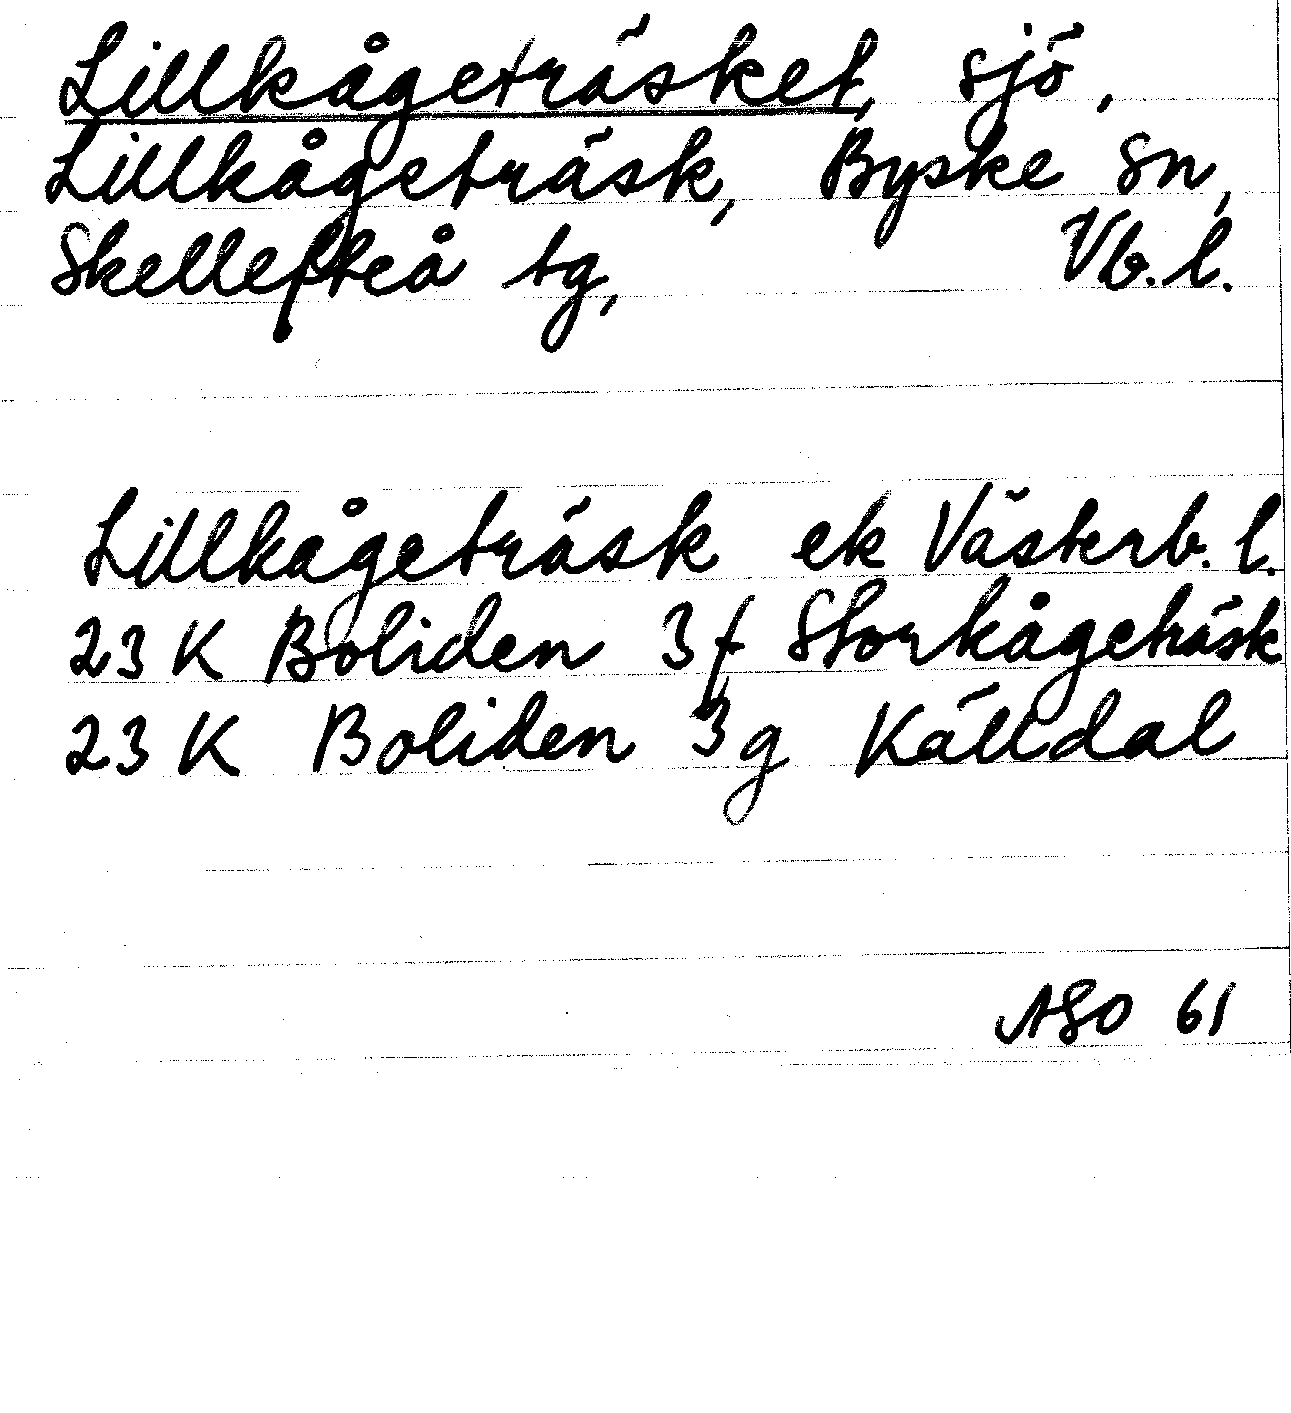 Lillkågeträsket, sjö,
Lillkågeträsk, Byske sn,
Skellefteå tg, Vb. l.
Lillkågeträsk ek Västerb. l.
23 K Boliden 3f Storkågeträsk
23 K Boliden 3g Källdal
ASO 61